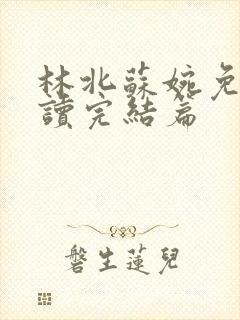 林北蘇婉免
讀完結篇
磐生蓮兒